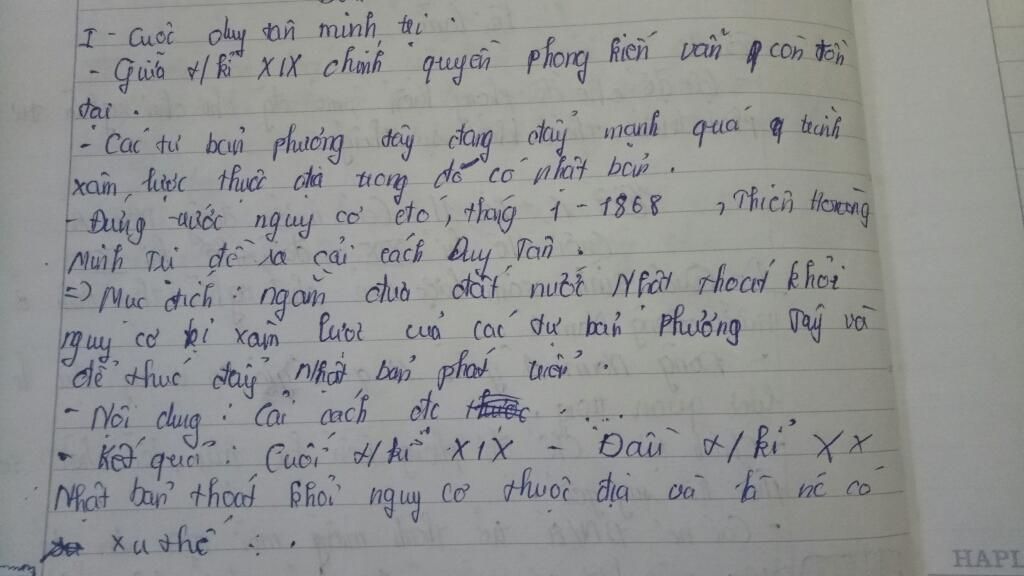 I - Cuộc duy tân minh trị.
- Giữa t/kỉ XIX chính quyền phong kiến vẫn còn tồn
tại.
- Các tư bản phương tây đang đẩy mạnh quá trình
xâm lược thuộc địa trong đó có nhật bản.
- Đứng trước nguy cơ đó, tháng 1 - 1868, Thiên Hoàng
Minh Trị đề ra cải cách Duy Tân.
=> Mục đích: ngăn đưa đất nước Nhật thoát khỏi
nguy cơ bị xâm lược của các tư bản Phương Tây và
để thúc đẩy Nhật bản phát triển.
- Nội dung: Cải cách etc ....
- Kết quả: Cuối t/kỉ XIX - Đầu t/kỉ XX
Nhật bản thoát khỏi nguy cơ thuộc địa và là nc có
xu thế ..
HAPL